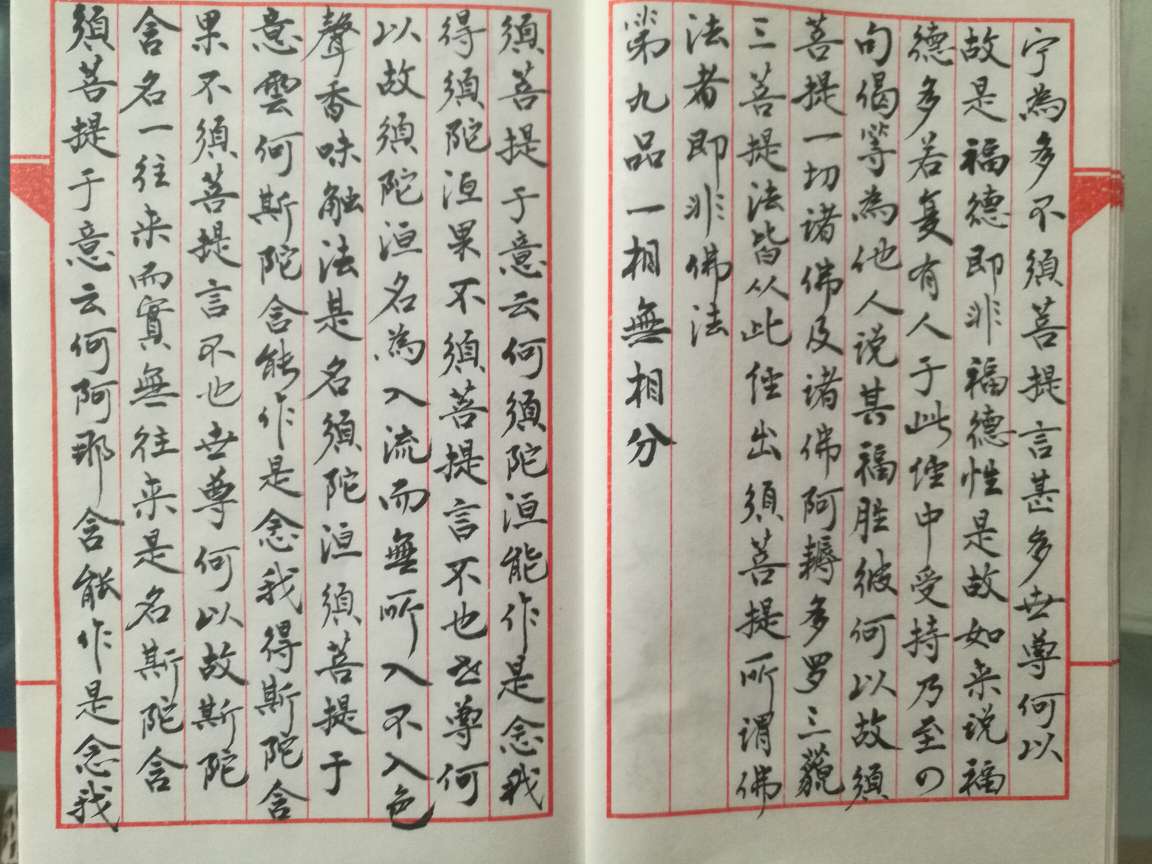 宁為多不須菩提言甚多世尊何以
故是福德即非福德性是故如来说福
德多若复有人于此经中受持乃至四
句偈等為他人说其福胜彼何以故須
菩提一切诸佛及诸佛阿耨多罗三藐
三菩提法皆从此经出須菩提所谓佛
法者即非佛法
第九品一相無相分
須菩提于意云何須陀洹能作是念我
得須陀洹果不須菩提言不也世尊何
以故須陀洹名為入流而無所入不入色
聲香味触法是名須陀洹須菩提于
意雲何斯陀含能作是念我得斯陀含
果不須菩提言不也世尊何以故斯陀
含名一往来而實無往来是名斯陀含
須菩提于意云何阿那含能作是念我